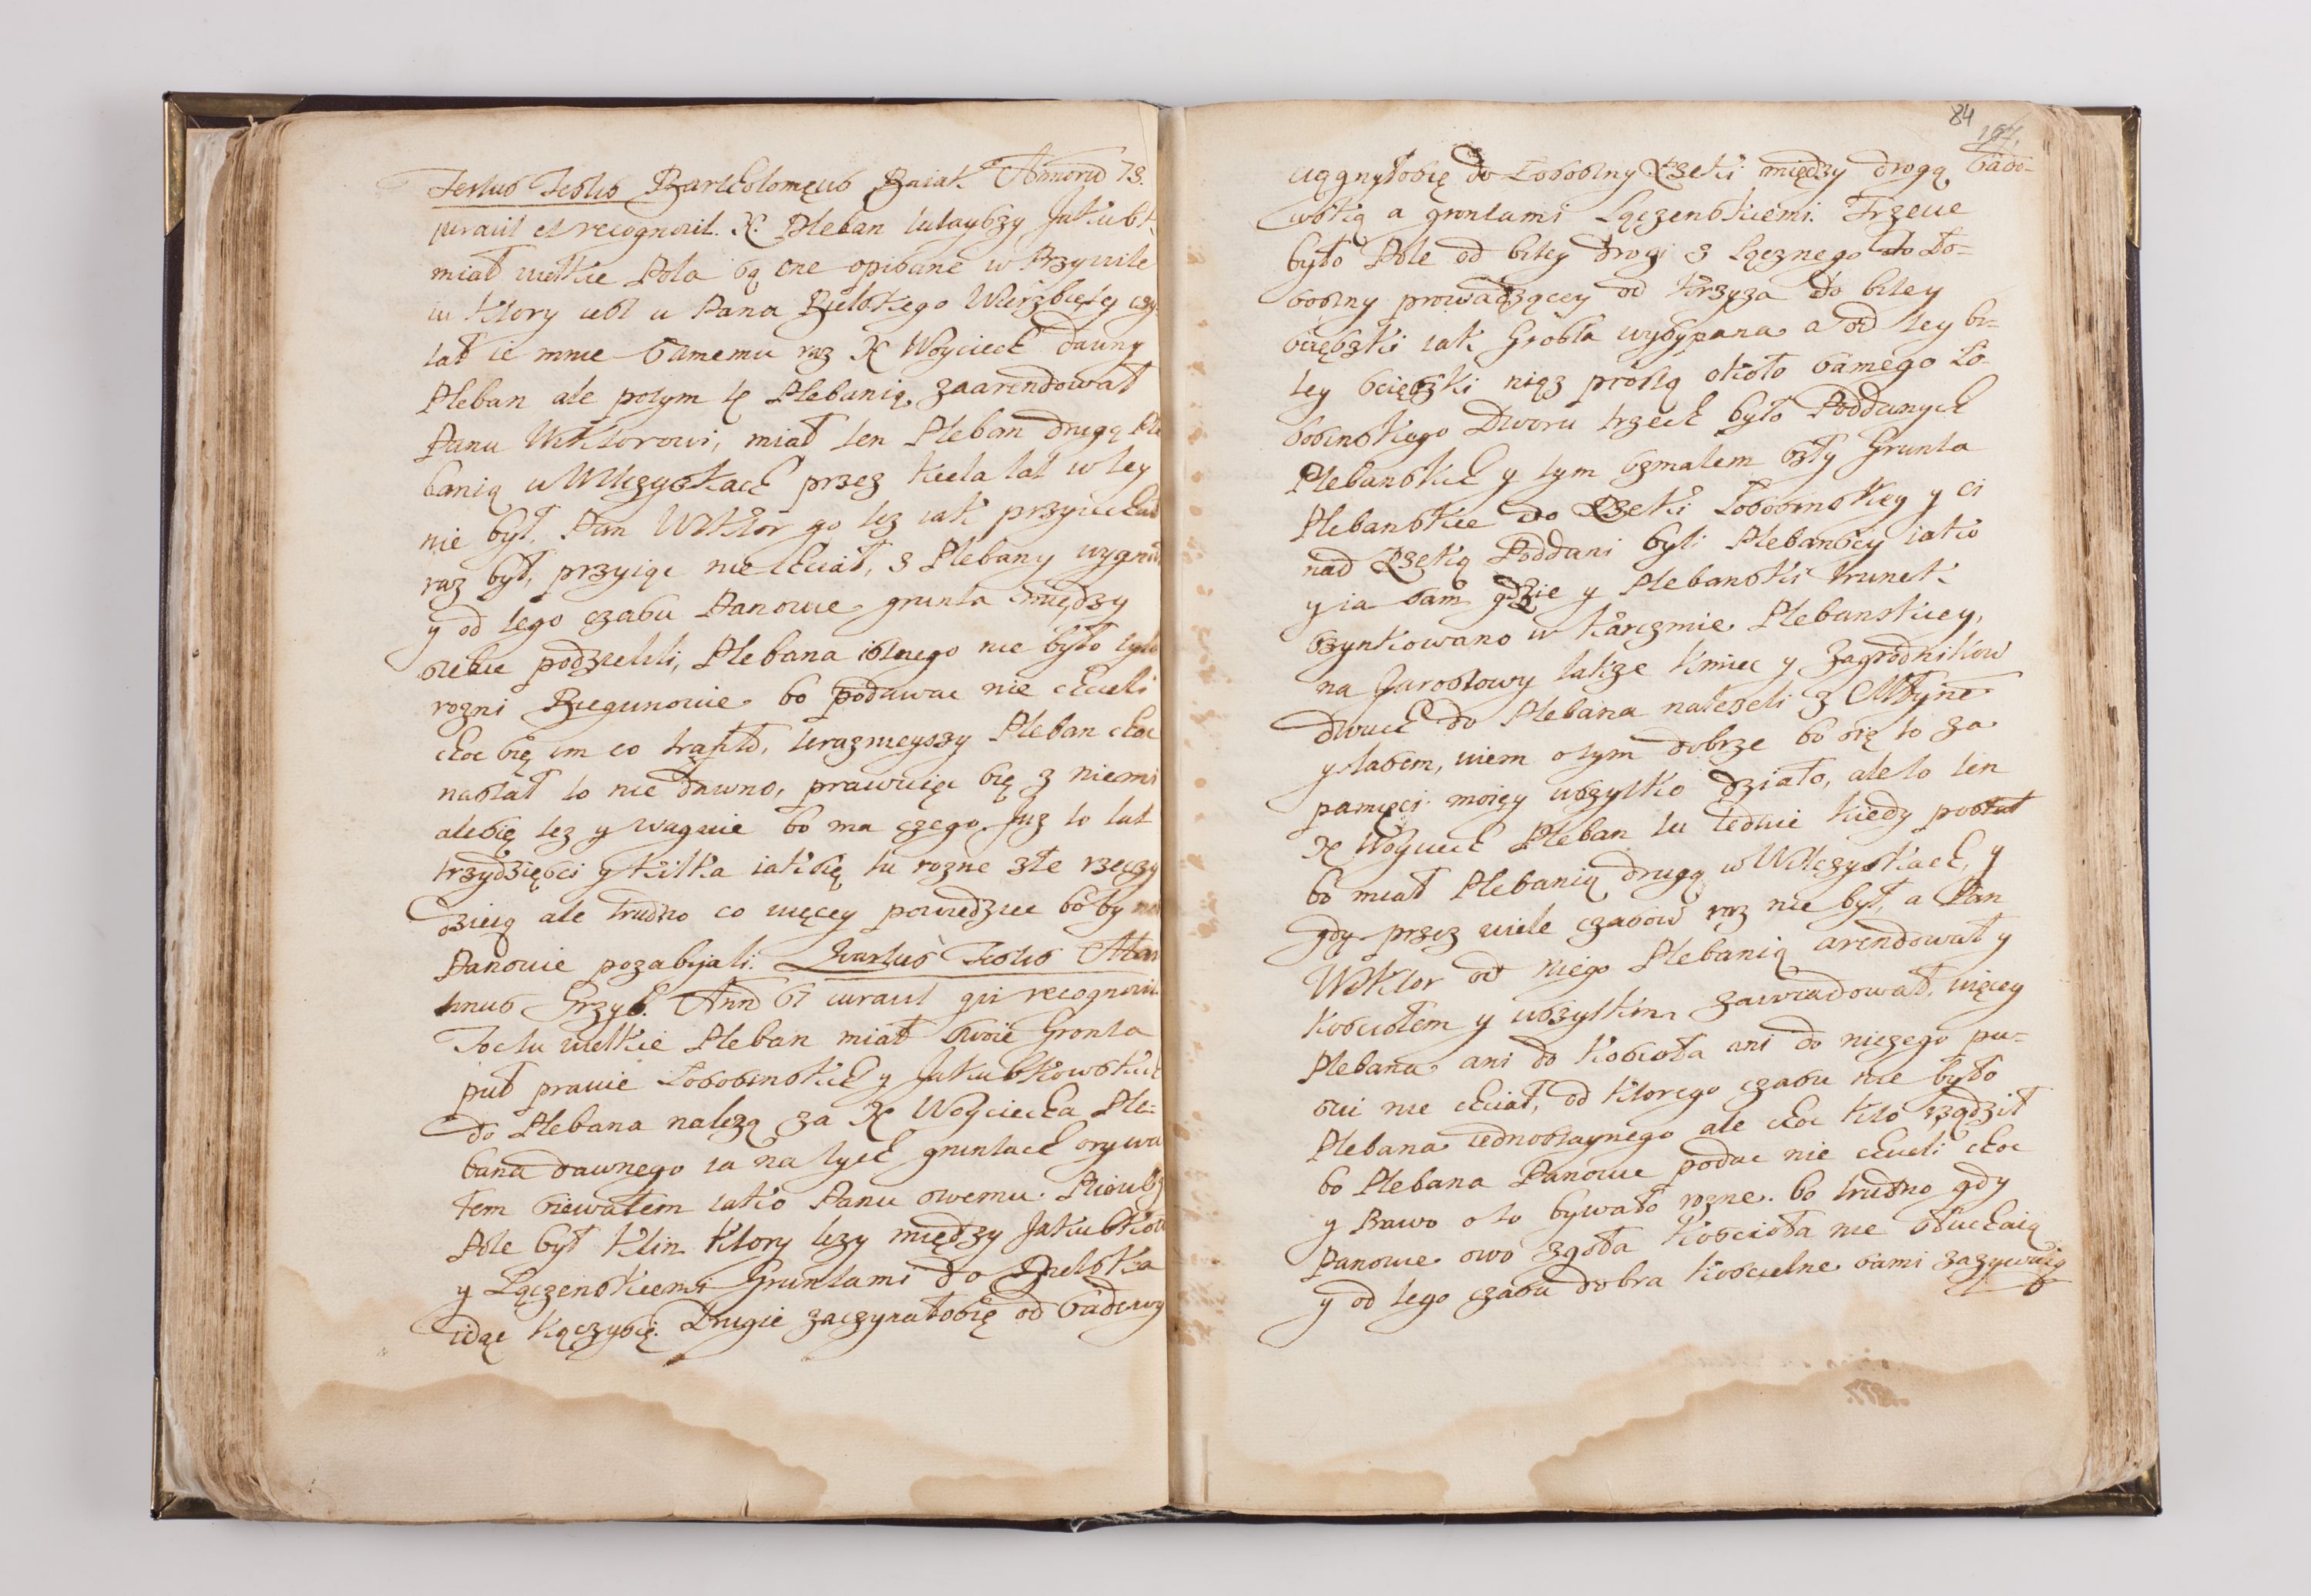 Tertius Testis Bartholomęus Baiak Annorũ 73.
juravit et recognovit. X. Pleban tutayszy Jakubk
miał wielkie Pola są one opisane w Przywile
iu ktory iest u Pana Bielskiego Wierzbięty czy
tał ie mnie samemu raz X Woyciech dawny
Pleban ale potym tę Plebanią zaarendował
Panu Wiktorowi, miał ten Pleban drugą Ple
banią w Wilczyskach przez kiela lat w tey
nie był, Pan Wiktor go tez iak przyiechał
raz był, przyiąc nie chciał, z Plebany wygnał
y od tego czasu Panowie grunta między
siebie podzielili, Plebana istnego nie było tylo
rozni Biegunowie bo podawac nie chcieli
choc się im co trafiło, teraznieyszy Pleban choc
nastał to nie dawno, prawuięc się z niemi
alesię tez y waguie bo ma czego. Juz to lat
trzydzięsci y kilka iaksię tu rozne złe rzeczy
dzieią ale trudno co więcey powiedziec bo by nas
Panowie pozabijali. Quartus Testis Mar
tinus Grzyb. Ann̄ 67 iuravit qui recognovit
Toc tu wielkie Pleban miał swoie Gronta
puł prawie Lososinskich y Jakubkowskich
do Plebana nalezą za X Woyciecha Ple-
bana dawnego ia na tych gruntach orywa
łem siewałem iako Panu swemu. Pierwsze
Pole był Klin ktory lezy między Jakubkow
y Łączenskiemi Gruntami do Bielska
idąc kączysię. Drugie zaczynałosię od Sadowy
84
167.
ciągnyłosię do Lososiny Rzeki między drogą Sado-
wską a grontami Łączenskiemi. Trzecie
było Pole od bitey drogi z Łącznego do Lo-
sosiny prowadzącey od krzyza do bitey
scięszki iak Grobla wysypana a od tey bi-
tey scięszki niąz prostą około samego Lo-
sosinskiego Dworu trzech było Poddanych
Plebanskich y tym szmatem szły Grunta
Plebanskie do Rzeki Lososinskiey y ci
nad Rzeką Poddani byli Plebanscy iako
y ia sam gdzie y Plebanski trunek
szynkowano w karczmie Plebanskiey,
na Jarostowy takze kmiec y Zagrodnikow
dwuch do Plebana nalezeli z Młyne
y lasem, wiem o tym dobrze bo się to za
pamięci moięy wszytko działo, ale to ten
X Woyciech Pleban tu ledwie kiedy postał
bo miał Plebanią drugą w Wilczyskach, y
gdy przez wiele czasow raz nie był, a Pan
Wiktor od niego Plebanią arendował y
Kosciołem y wszytkim zawiadował, więcey
Plebana ani do koscioła ani do niczego pu-
sci nie chciał, od ktorego czasu nie było
Plebana iednostaynego ale choc kto rządził
bo Plebana Panowie podac nie chcieli choc
y Prawo o to bywało rozne. bo trudno gdy
Panowie owo zgoła Koscioła nie słuchaią
y od tego czasu dobra koscielne sami zazywaią